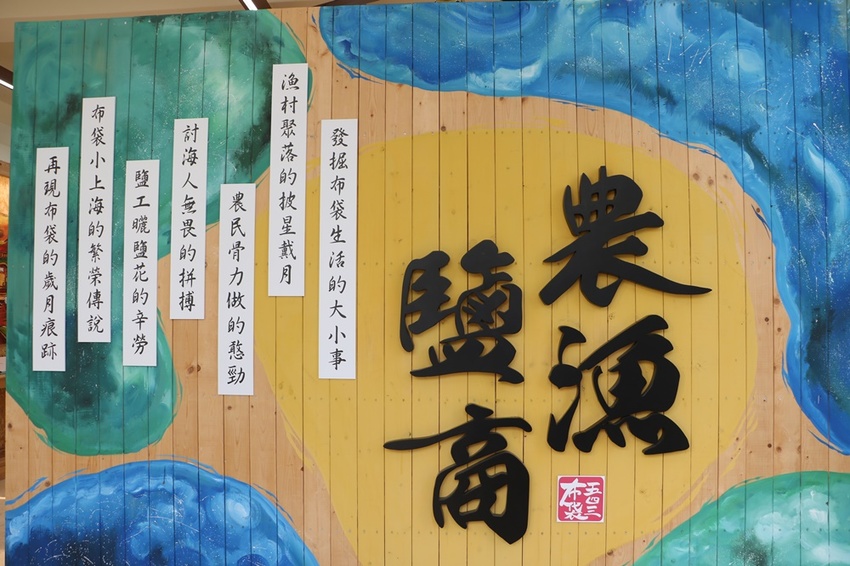 農漁
鹽畜
五四三
布袋
發掘布袋生活的大小事
漁村聚落的披星戴月
農民骨力做的憨勁
討海人無畏的拼搏
鹽工曬鹽花的辛勞
布袋小上海的繁榮傳說
再現布袋的歲月痕跡